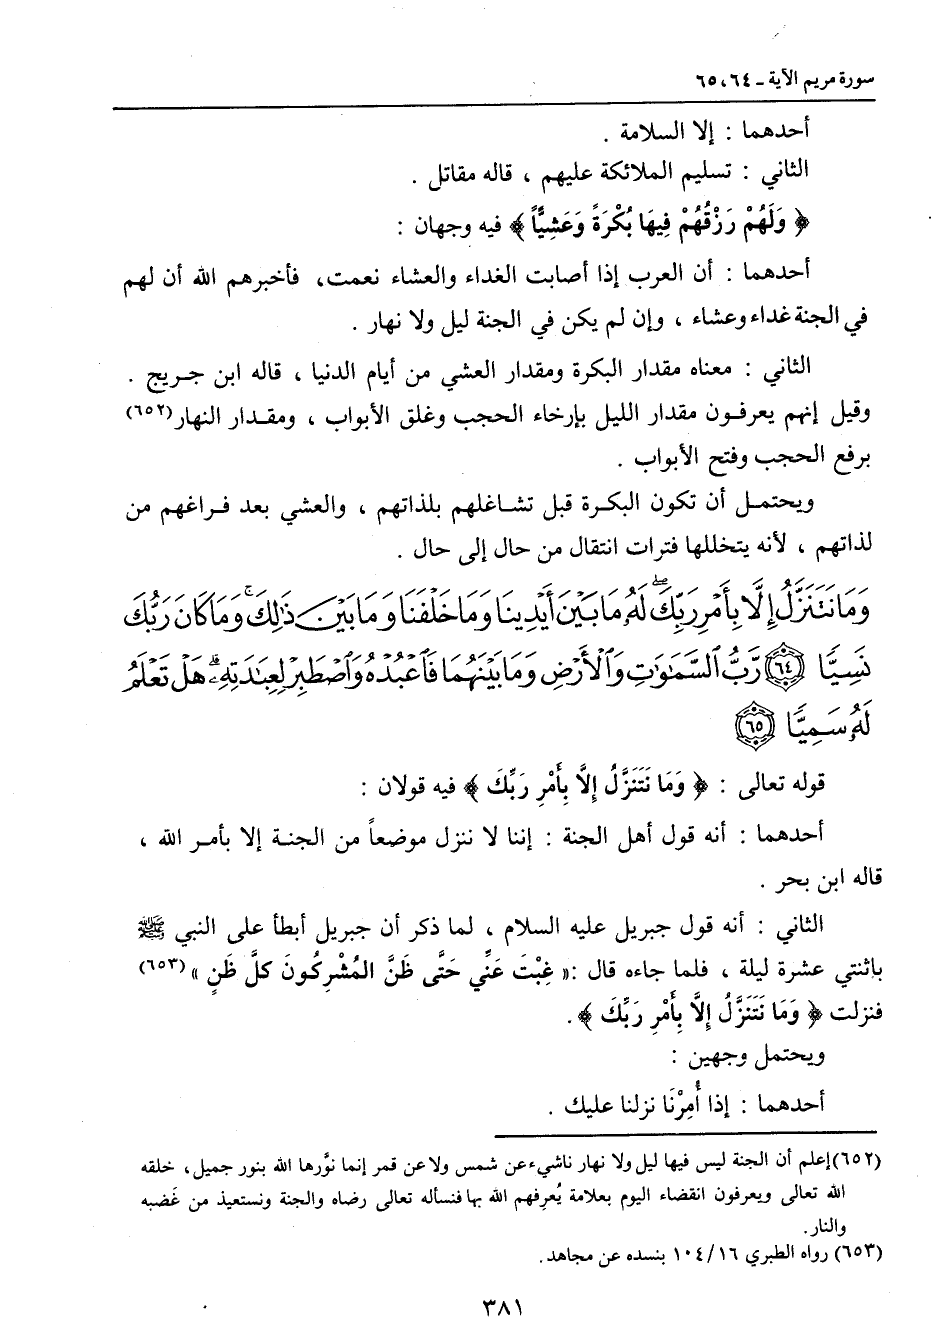 سورة مريم الآية ـ ٦٤، ٦٥
أحدهما : إلا السلامة .
الثاني : تسليم الملائكة عليهم ، قاله مقاتل .
﴿ وَلَهُمْ رَزْقُهُمْ فِيهَا بُكْرَةً وَعَشِيًّاً ﴾ فيه وجهان :
أحدهما : أن العرب إذا أصابت الغداء والعشاء نعمت، فأخبرهم الله أن لهم
في الجنة غداء وعشاء ، وإن لم يكن في الجنة ليل ولا نهار .
الثاني : معناه مقدار البكرة ومقدار العشي من أيام الدنيا ، قاله ابن جريج .
وقيل إنهم يعرفون مقدار الليل بإرخاء الحجب وغلق الأبواب ، ومقدار النهار(٦٥٢)
برفع الحجب وفتح الأبواب .
ويحتمل أن تكون البكرة قبل تشاغلهم بلذاتهم ، والعشي بعد فراغهم من
لذاتهم ، لأنه يتخللها فترات انتقال من حال إلى حال .
وَمَا نَتَنَزَّلُ إِلَّا بِأَمْرِ رَبِّكَ ۖ لَهُۥ مَا بَيْنَ أَيْدِينَا وَمَا خَلْفَنَا وَمَا بَيْنَ ذَٰلِكَ ۚ وَمَا كَانَ رَبُّكَ
نَسِيًّا ٦٤ رَّبُّ ٱلسَّمَٰوَٰتِ وَٱلْأَرْضِ وَمَا بَيْنَهُمَا فَٱعْبُدْهُ وَٱصْطَبِرْ لِعِبَٰدَتِهِۦ ۚ هَلْ تَعْلَمُ
لَهُۥ سَمِيًّا ٦٥
قوله تعالى : ﴿ وَمَا نَتَنَزَّلُ إِلاَّ بِأَمْرِ رَبِّكَ ﴾ فيه قولان :
أحدهما : أنه قول أهل الجنة : إننا لا ننزل موضعاً من الجنة إلا بأمر الله ،
قاله ابن بحر .
الثاني : أنه قول جبريل عليه السلام ، لما ذكر أن جبريل أبطأ على النبي ﷺ
بإثنتي عشرة ليلة ، فلما جاءه قال :« غِبْتَ عَنِّي حَتَّى ظَنَّ المُشْرِكُونَ كلَّ ظَنٍ »(٦٥٣)
فنزلت ﴿ وَمَا نَتَنَزَّلُ إِلاَّ بِأَمْرِ رَبِّكَ ﴾.
ويحتمل وجهين :
أحدهما : إذا أُمِرْنَا نزلنا عليك .
(٦٥٢)إعلم أن الجنة ليس فيها ليل ولا نهار ناشيء عن شمس ولا عن قمر إنما نوَّرها الله بنور جميل، خلقه
الله تعالى ويعرفون انقضاء اليوم بعلامة يُعرِفهم الله بها فنسأله تعالى رضاه والجنة ونستعيذ من غَضبه
والنار.
(٦٥٣) رواه الطبري ١٠٤/١٦ بنسده عن مجاهد.
٣٨١